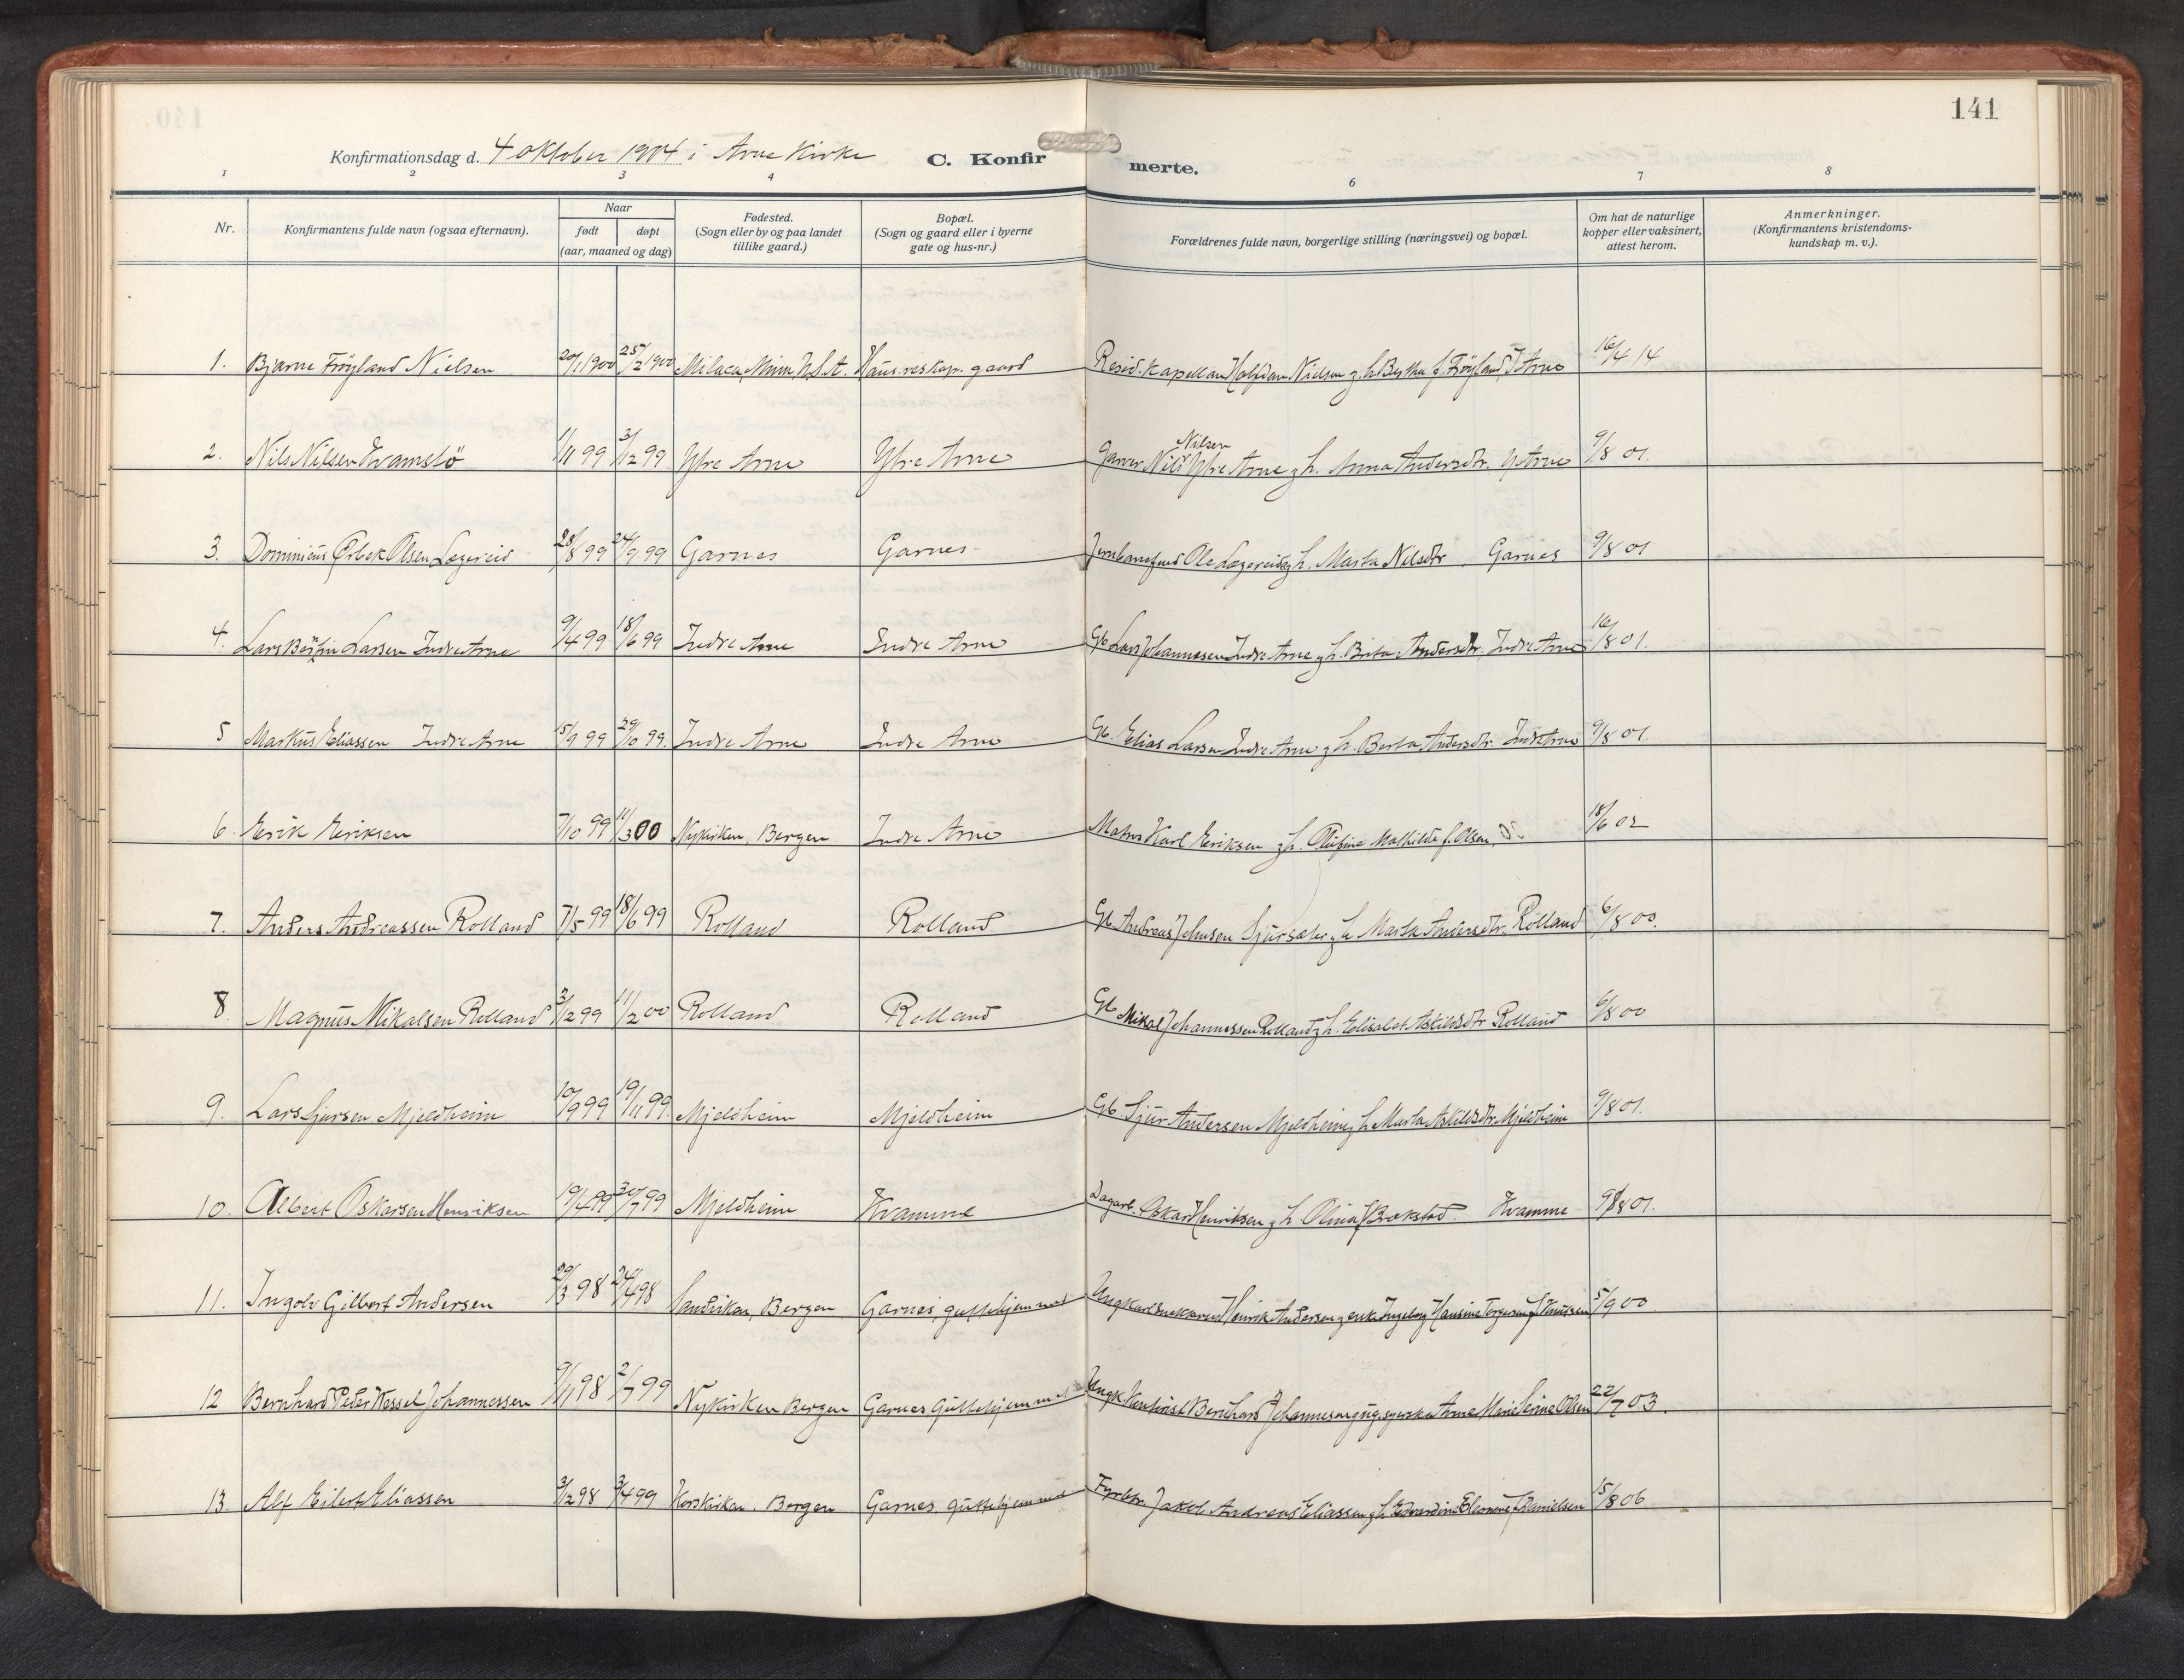 141
Konfirmationsdag d. 4 oktober 1914 i Arne Kirke C. Konfirmerte.
1 2 3 4 6 7 8
Nr. Konfirmantens fulde navn (ogsaa efternavn). Naar født døpt (aar, maaned og dag) Fødested. (Sogn eller by og paa landet tillike gaard.) Bopæl. (Sogn og gaard eller i byerne gate og hus-nr.) Forældrenes fulde navn, borgerlige stilling (næringsvei) og bopæl. Om hat de naturlige kopper eller vaksinert, attest herom. Anmerkninger. (Konfirmantens kristendomskundskap m. v.).
1. Bjarne Fröyland Nielsen 20/1 1900 25/2 1900 Milaca, Minn. U.S.A. Haus res kap. gaard Resid. kapellan Halfdan Nielsen g. h. Bertha f. Fröyland, I Arne 16/4 14
2. Nils Nilsen Kvamslö 1/11 99 3/12 99 Ytre Arne Ytre Arne Garver Nils Nilsen Ytre Arne g h. Anna Andersdtr. Y Arne 9/8 01.
3. Dominicus Ørbek Olsen Lægreid 28/8 99 24/9 99 Garnes Garnes Ole Lægreid g h. Marta Nilsdtr. Garnes 9/8 01
4. Lars Larsen Indre Arne 9/4 99 18/6 99 Indre Arne Indre Arne Gb. Lars Johannesen Indre Arne g h. Brita Andersdtr. Indre Arne 16/8 01.
5 Markus Eliassen Indre Arne 15/9 99 29/10 99. Indre Arne Indre Arne Gb. Elias Larsen Indre Arne g h. Berta Andersdtr. Indre Arne 9/8 01.
6. Erik Eriksen 7/10 99 11/3 00 Nykirken, Bergen Indre Arne Matros Karl Eriksen g h. Olufine Mathilde f. Olsen, 18/6 02
7. Anders Andreassen Rolland 7/5 99 18/6 99 Rolland Rolland Gb. Andreas Johnsen g h Marta Andersdtr. Rolland 6/8 00.
8 Magnus Mikalsen Rolland 3/12 99 11/2 00 Rolland Rolland Gb Mikal Johannessen Rolland g h. Elisabet Askildsdtr Rolland 6/8 00
9. Lars Sjursen Mjeldheim 10/9 99 19/11 99. Mjeldheim Mjeldheim Gb. Sjur Andersen Mjeldheim g h Marta Askildsdtr. Mjeldheim 9/8 01.
10. Albert Oskarsen Henriksen 19/4 99 30/7 99 Mjeldheim Kvamme Dagarb. Oskar Henriksen g h. Olina f Brækstad. Kvamme 9/8 01.
11. Ingolv Gilbert Andersen 29/3 98 24/4 98 Sandviken, Bergen Garnes, guttehjemmet Ungkarl Henrik Andersen g enke Ingeborg Hansine Torgersen f Knutsen 5/9 00
12 Bernhard Peder Wessel Johannessen 9/11 98 2/7 99 Nykirken Bergen Garnes Guttehjemmet Ungk. Bernhard Johannesen g Anne Marie Serine Olsen 22/7 03.
13. Alf Eilert Eliassen 3/12 98 3/4 99 Korskirken. Bergen Garnes guttehjemmet Fyrbtr. Jakob Andreas Eliassen g h Edvardine Eleonore f Danielsen 15/8 06